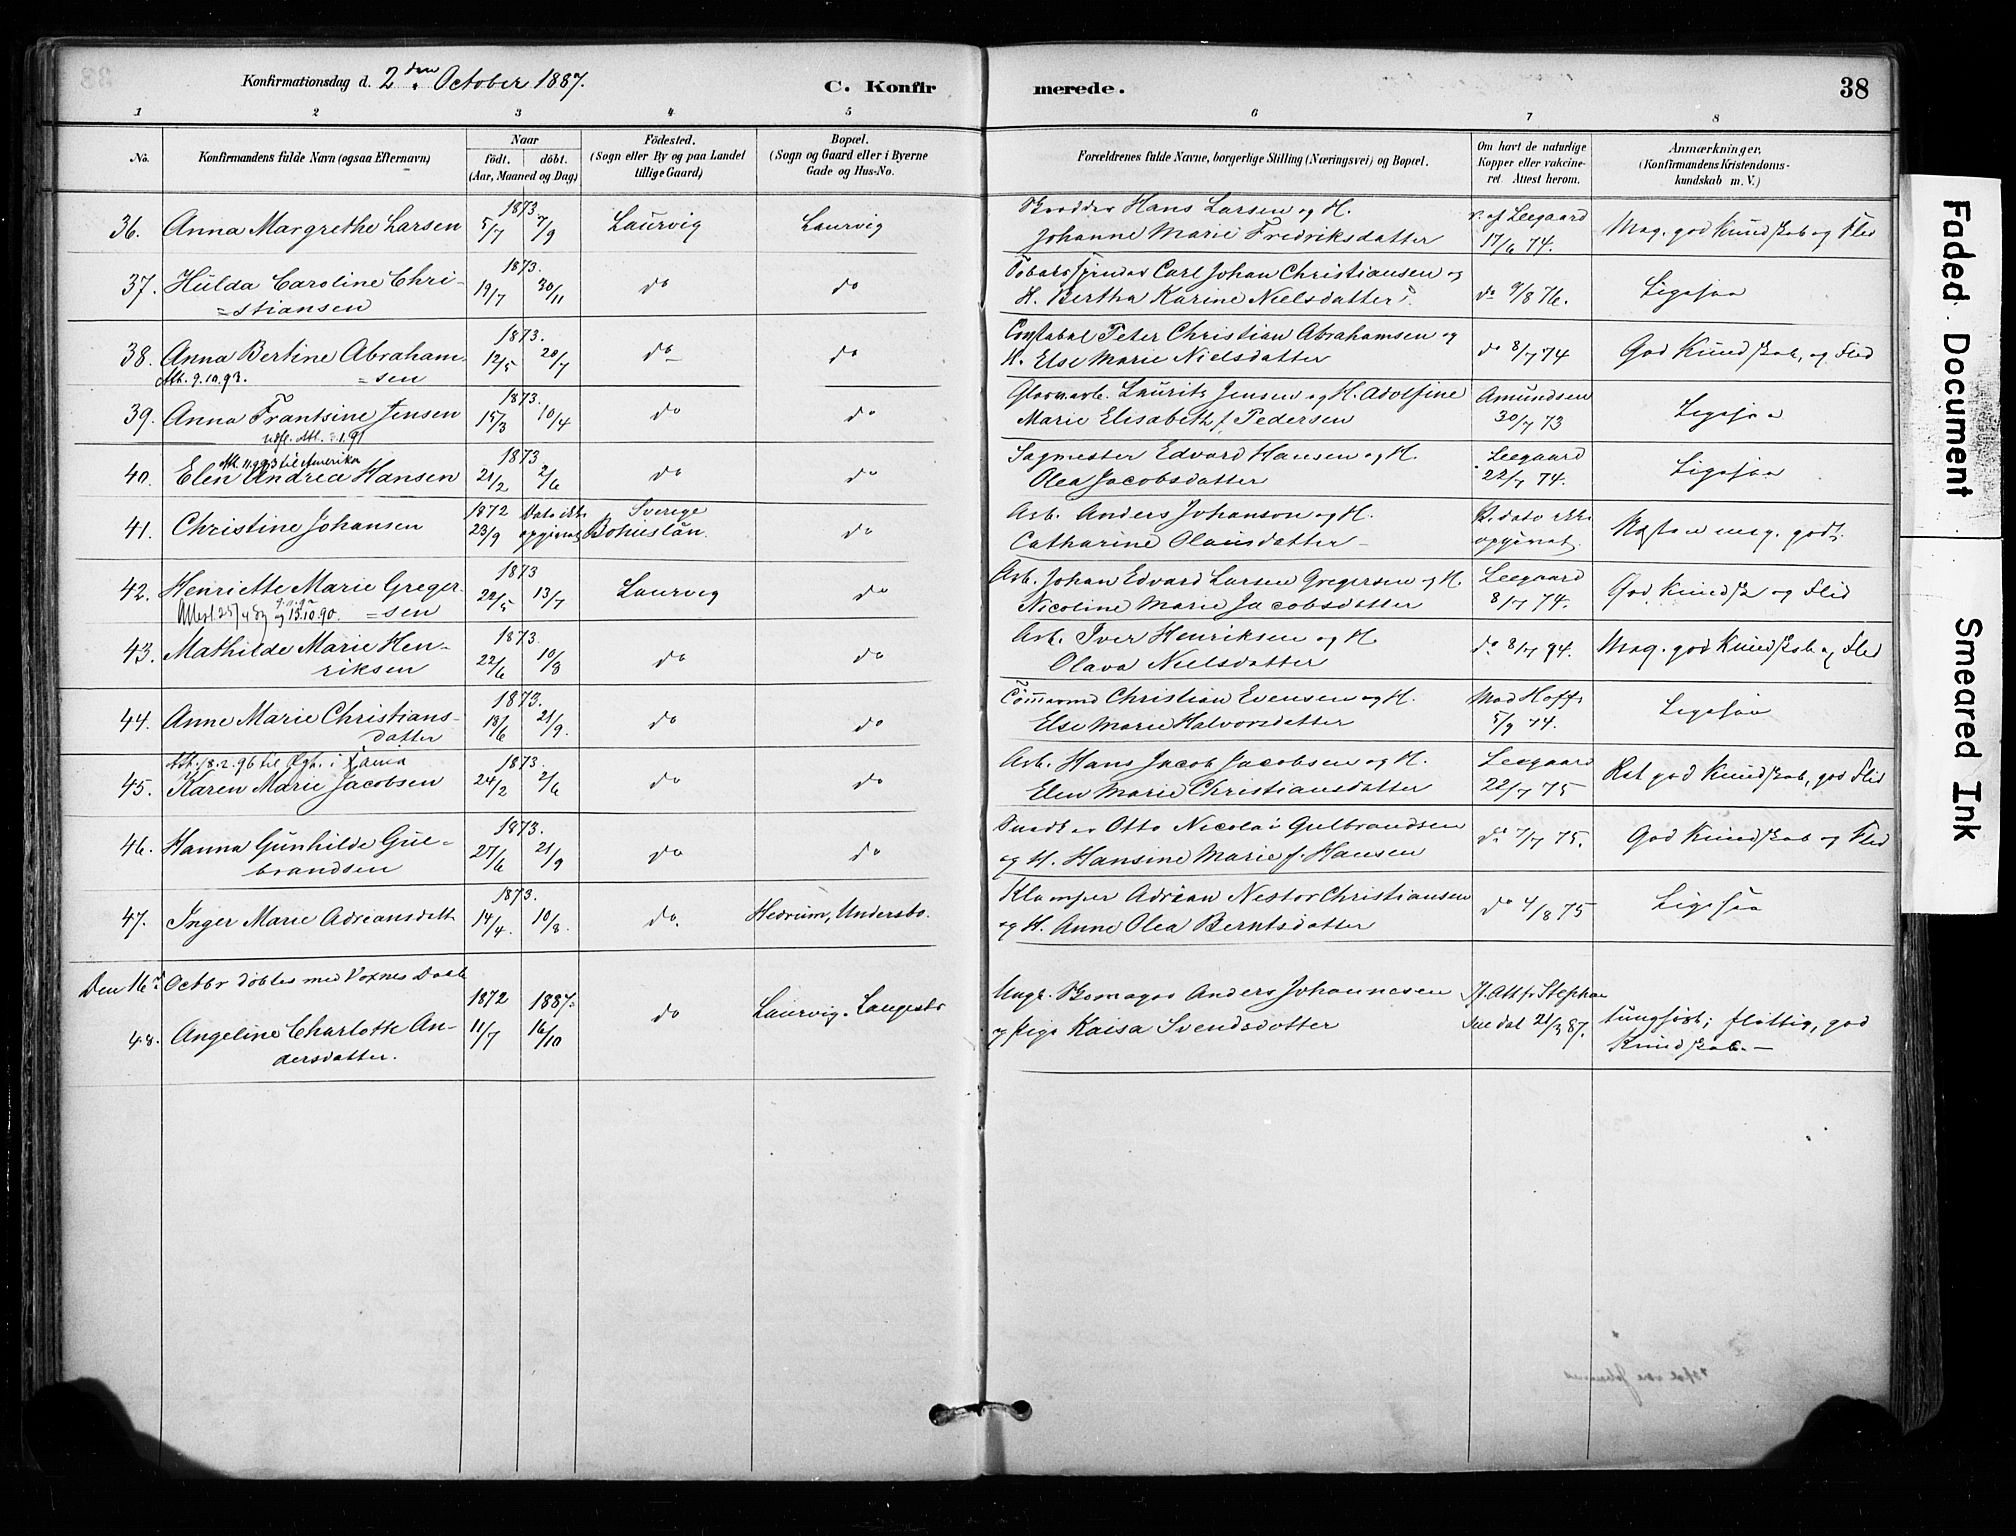 Konfirmationsdag d. 2den October 1887.
C. Konfirmerede.
38
1 2 3 4 5 6 7 8
No.
Konfirmandens fulde Navn (ogsaa Efternavn)
Naar
födt. döbt.
(Aar, Maaned og Dag)
Födested.
(Sogn eller By og paa Landet
tillige Gaard)
Bopæl.
(Sogn og Gaard eller i Byerne
Gade og Hus-No.
Forældrenes fulde Navne, borgerlige Stilling (Næringsvei) og Bopæl.
Om havt de naturlige
Kopper eller vakcine-
ret. Attest herom.
Anmærkninger,
(Konfirmandens Kristendoms-
kundskab m. V.)
36. Anna Margrethe Larsen 1873. 5/7 7/9 Laurvig Laurvig
Hans Larsen og H.
Johanne Marie Fredriksdatter
v. af Leegaard
17/6 74.
Meg. god Kundskab og Flid
37. Hulda Caroline Chri-
=stiansen
1873. 19/7 30/11 do do
Carl Johan Christiansen og
H. Bertha Karine Nielsdatter
do 9/8 76. Ligesaa
38. Anna Bertine Abraham-
=sen
Att. 9.10.93.
1873. 12/5 20/7 do do
Constabel Peter Christian Abrahamsen og
H. Else Marie Nielsdatter
do 8/7 74 God Kundskab, og Flid
39. Anna Frantsine Jensen
1873. 15/3 10/4 do do
Glasmarb. Laurits Jensen og H. Adolfine
Marie Elisabeth f. Pedersen
Amundsen
30/7 73
Ligesaa
til Amerika
40. Elen Andrea Hansen 1873 21/2 2/6 do do
Sagmester Edvard Hansen og H.
Olea Jacobsdatter
Leegaard
22/7 74.
Ligesaa
41. Christine Johansen 1872 23/9 Dato ikke
opgivet
Sverige
Bohuslän.
do
Arb. Anders Johanson og H.
Catharine Olausdatter
dato ikke
opgivet.
Næsten meg. godt.
42. Henriette Marie Greger-
=sen
13.10.90.
1873 22/5 13/7 Laurvig do
Arb. Johan Edvard Larsen Gregersen og H.
Nicoline Marie Jacobsdatter
Leegaard
8/7 74.
God Kundsk og Flid
43. Mathilde Marie Hen-
riksen
1873 22/6 10/8 do do
Arb. Iver Henriksen og H.
Olava Nielsdatter
do 8/7 94. Meg. god Kundskab og Flid
44. Anne Marie Christians-
datter
1873. 18/6 21/9. do do
Tømmermd Christian Evensen og H.
Else Marie Halvorsdatter
Mad Hoff
5/9 74.
Ligesaa
Att. 18.2.96 til
45. Karen Marie Jacobsen 1873. 24/2 2/6 do do
Arb. Hans Jacob Jacobsen og H.
Elen Marie Christiansdatter
Leegaard
22/7 75
Ret god Kundskab, god Flid
46. Hanna Gunhilde Gul-
brandsen
1873. 27/6 21/9 do do
Otto Nicolai Gulbrandsen
og H. Hansine Marie f. Hansen
do 7/7 75. God Kundskab og Flid
47. Inger Marie Adriansdatt. 1873. 14/4. 10/8. do. Hedrum, Undersbo.
Adrian Nestor Christiansen
og H. Anne Olea Berntsdatter
do 4/8 75 Ligesaa
Den 16de Octbr döbtes med Voxnes Daab
48. Angeline Charlotte An-
dersdatter.
1872 11/7 1887. 16/10 do Laurvig. Langestr
Ungk. Anders Johannesen
og Pige Kaisa Svendsdatter
21/3 87.
tungfört; flittig, god
Kundskab.—
Faded Document
Smeared Ink